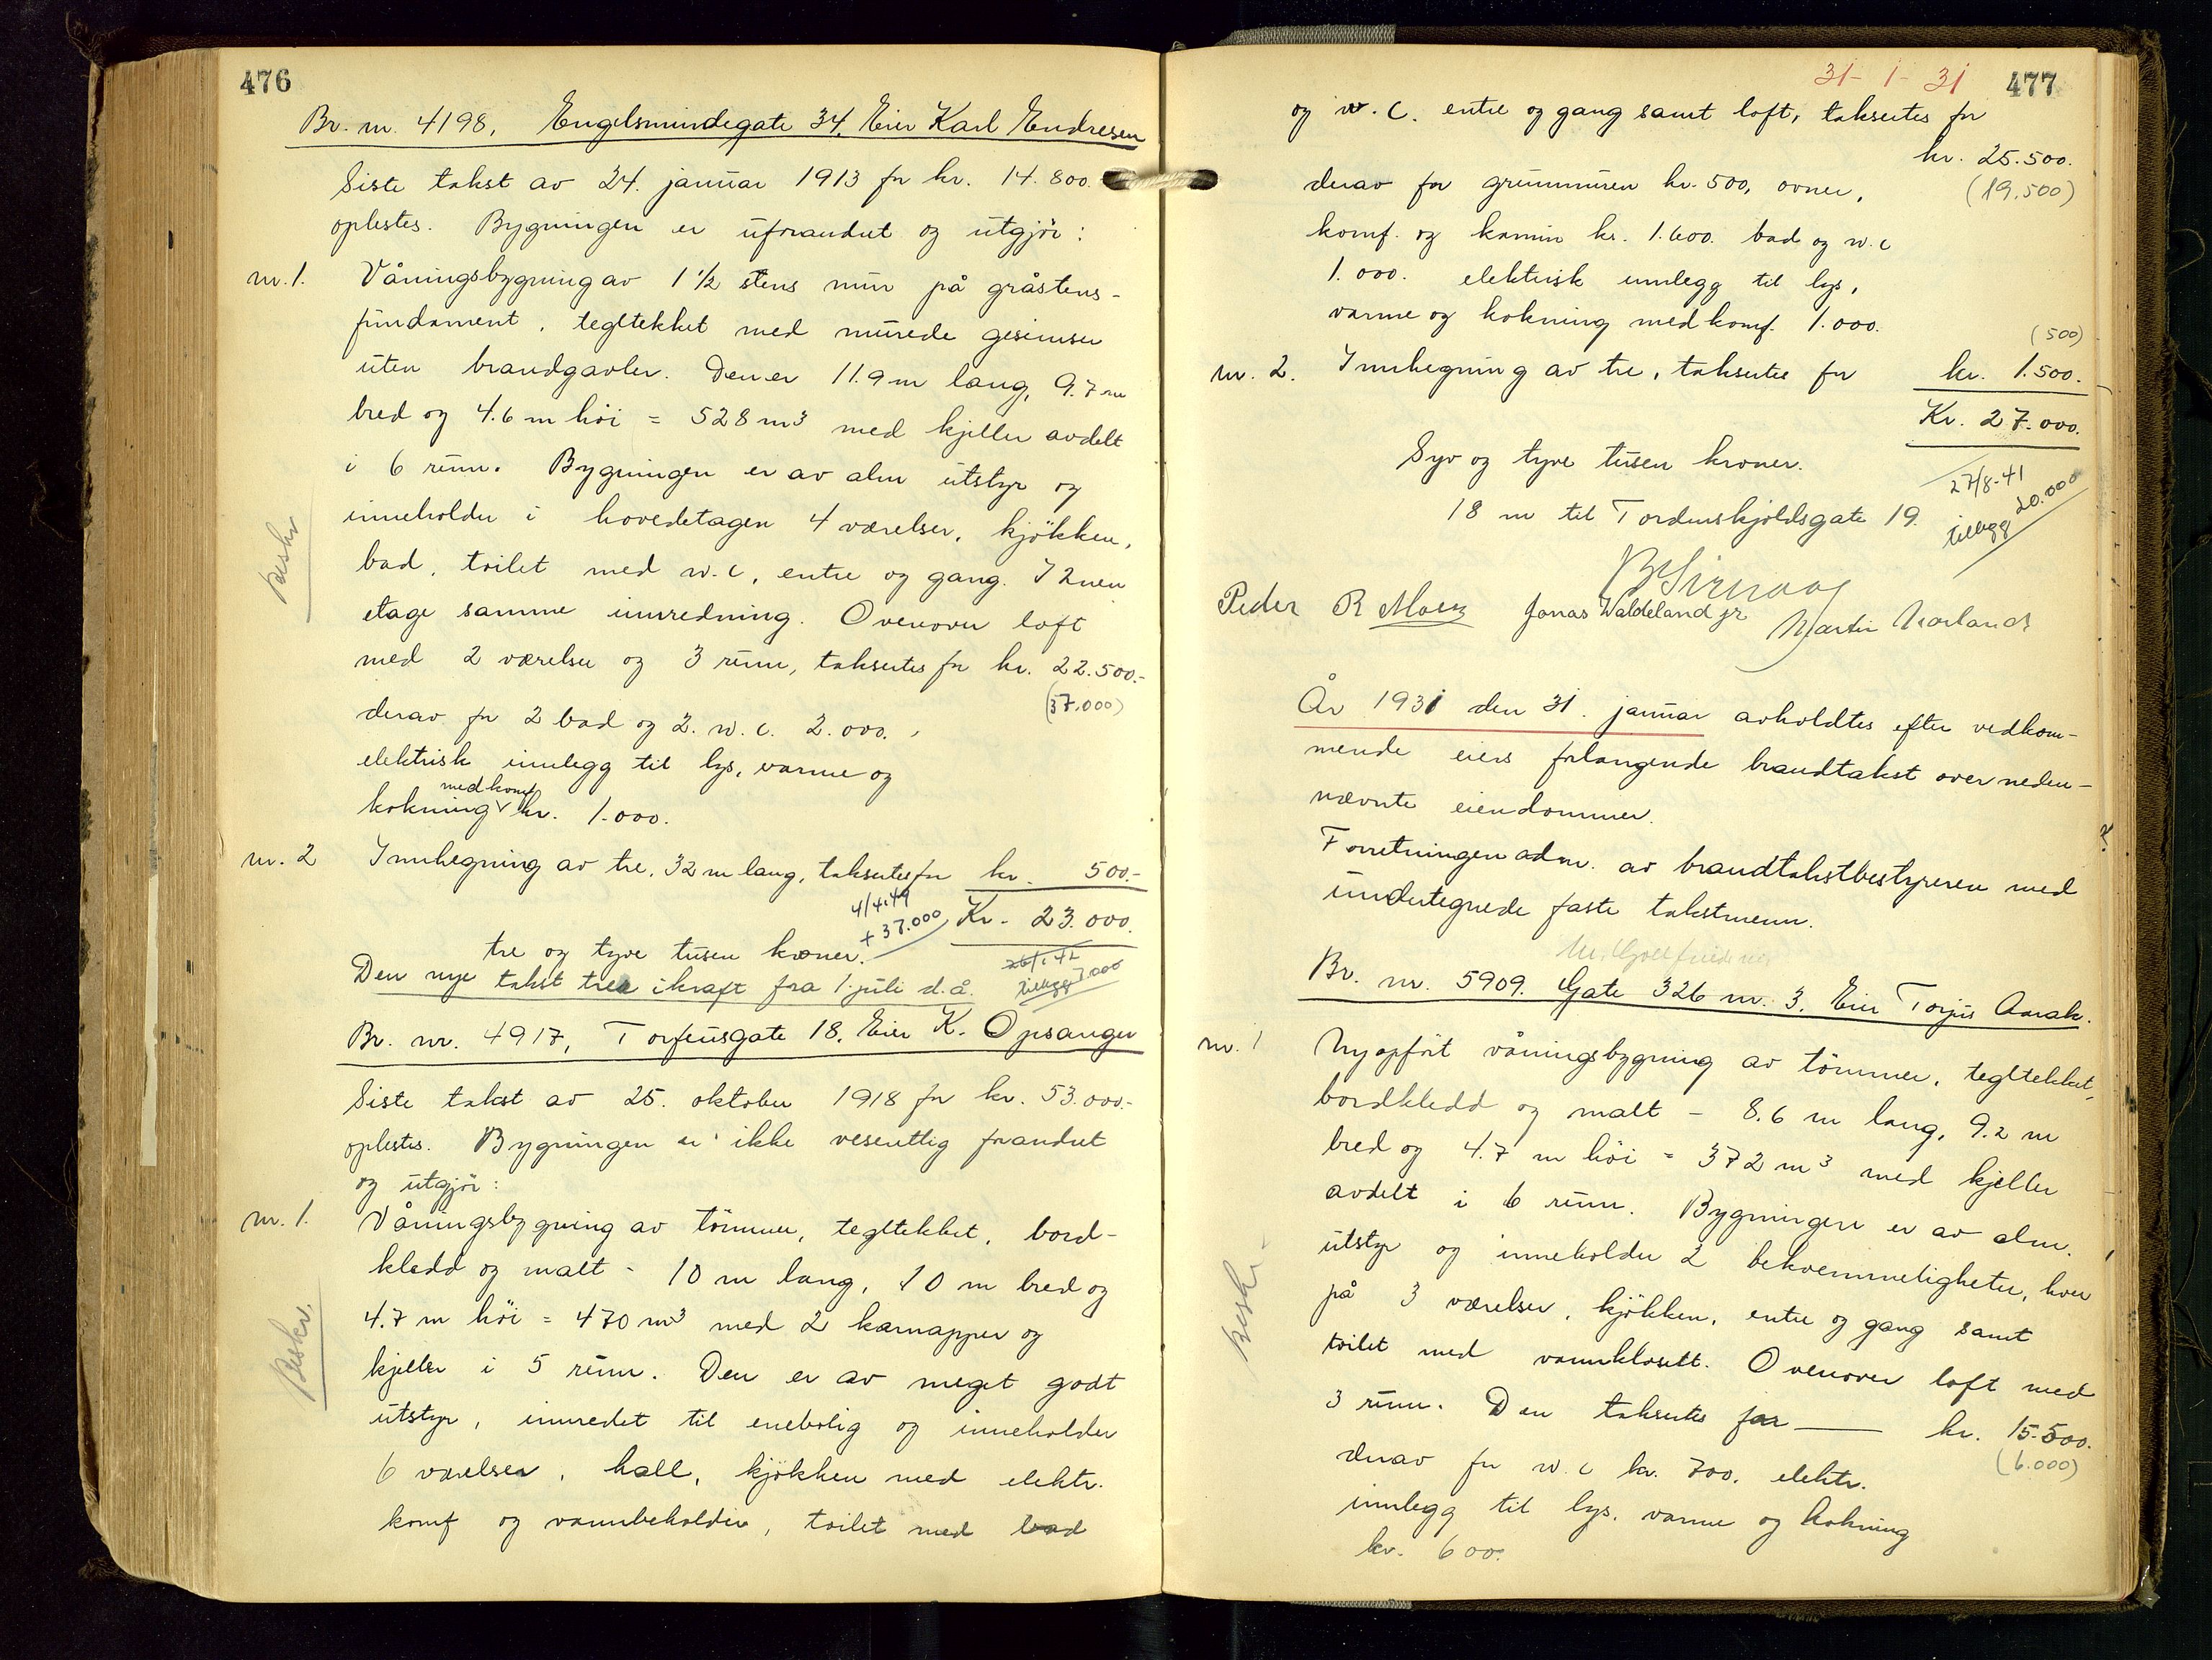 476
Br. nr. 4198, Engelsmindegate 34. Eier Karl Endresen
Siste takst av 24. januar 1913 for kr. 14.800.
oplestes. Bygningen er uforandret og utgjör:
nr. 1. Våningsbygning av 1 1/2 stens mur på gråstens-
fundament, tegltekket med murede gesimser
uten brandgavler. Den er 11.9 m lang, 9.7 m
bred og 4.6 m höi = 528 m³ med kjeller avdelt
i 6 rum. Bygningen er av alm utstyr og
inneholder i hovedetagen 4 værelser, kjökken,
Beskr
bad, toilet med w.c, entre og gang. I 2nen
etage samme innredning. Ovenover loft
med 2 værelser og 3 rum, takseres for kr. 22.500.-
(37.000)
derav for 2 bad og 2. w.c. 2.000.,
elektrisk innlegg til lys, varme og
med komf
kokning kr. 1.000.
nr. 2 Innhegning av tre, 32 m lang, takseres for kr. 500.-
4/4.49
+ 37.000
Kr. 23.000.
tre og tyve tusen kroner.
26/1.42
tillegg 7.000
Den nye takst trer ikraft fra 1. juli d.å.
Br. nr. 4917, Torfeusgate 18. Eier K. Opsanger
Siste takst av 25. oktober 1918 for kr. 53.000.-
oplestes. Bygningen er ikke vesentlig forandret
og utgjör:
nr. 1. Våningsbygning av tömmer, tegltekket, bord-
kledd og malt - 10 m lang, 10 m bred og
4.7 m höi = 470 m³ med 2 karnapper og
Beskr.
kjeller i 5 rum. Den er av meget godt
utstyr, innredet til enebolig og inneholder
6 værelser, hall, kjökken med elektr.
komf og vannbeholder, toilet med bad
31-1-31 477
og w.c. entre og gang samt loft, takseres for
kr. 25.500.
(19.500)
derav for grunnmuren kr. 500, ovner,
komf. og kamin kr. 1.600. bad og w.c
1.000. elektrisk innlegg til lys,
varme og kokning med komf. 1.000.
(500)
nr. 2. Innhegning av tre, takseres for kr. 1.500.
Kr. 27.000.
Syv og tyve tusen kroner.
27/8-41
tillegg 20.000
18 m til Tordenskjoldsgate 19.
Peder R Jonas Waldeland jr. Martin
År 1931 den 31. januar avholdtes efter vedkom-
mende eiers forlangende brandtakst over neden-
nævnte eiendommer.
Forretningen adm. av brandtakstbestyreren med
undertegnede faste takstmenn.
Br. nr. 5909. Gate 326 nr. 3. Eier Torjus Aarak.
nr. 1 Nyopfört våningsbygning av tömmer, tegltekket,
bordkledd og malt - 8.6 m lang, 9.2 m
bred og 4.7 m höi = 372 m³ med kjeller
avdelt i 6 rum. Bygningen er av alm.
Beskr
utstyr og inneholder 2 bekvemmeligheter, hver
på 3 værelser, kjökken, entre og gang samt
toilet med vannklosett. Ovenover loft med
3 rum. Den takseres for kr. 15.500.
(6.000)
derav for w.c kr. 700. elektr.
innlegg til lys, varme og kokning
kr. 600.